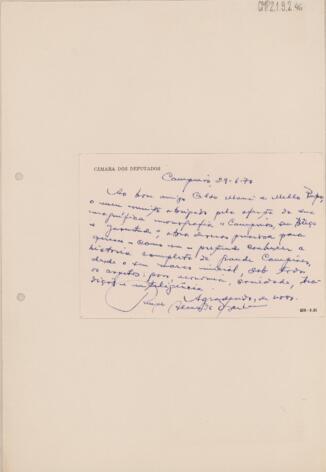 CMP2.1.9.2.46
CÂMARA DOS DEPUTADOS
Campinas, 29-6-70
Ao bom amigo Celso Maria de Mello Pupo,
o meu muito obrigado pela oferta de sua
magnífica monografia "Campinas, seu Berço
e Juventude", obra preciosa para
quem - como eu - pretende conhecer a
história completa da grande Campinas,
desde o seu marco inicial, sob todos
os aspectos: povo, economia, sociedade, tra-
dições e inteligência.
Agradecendo, de novo,